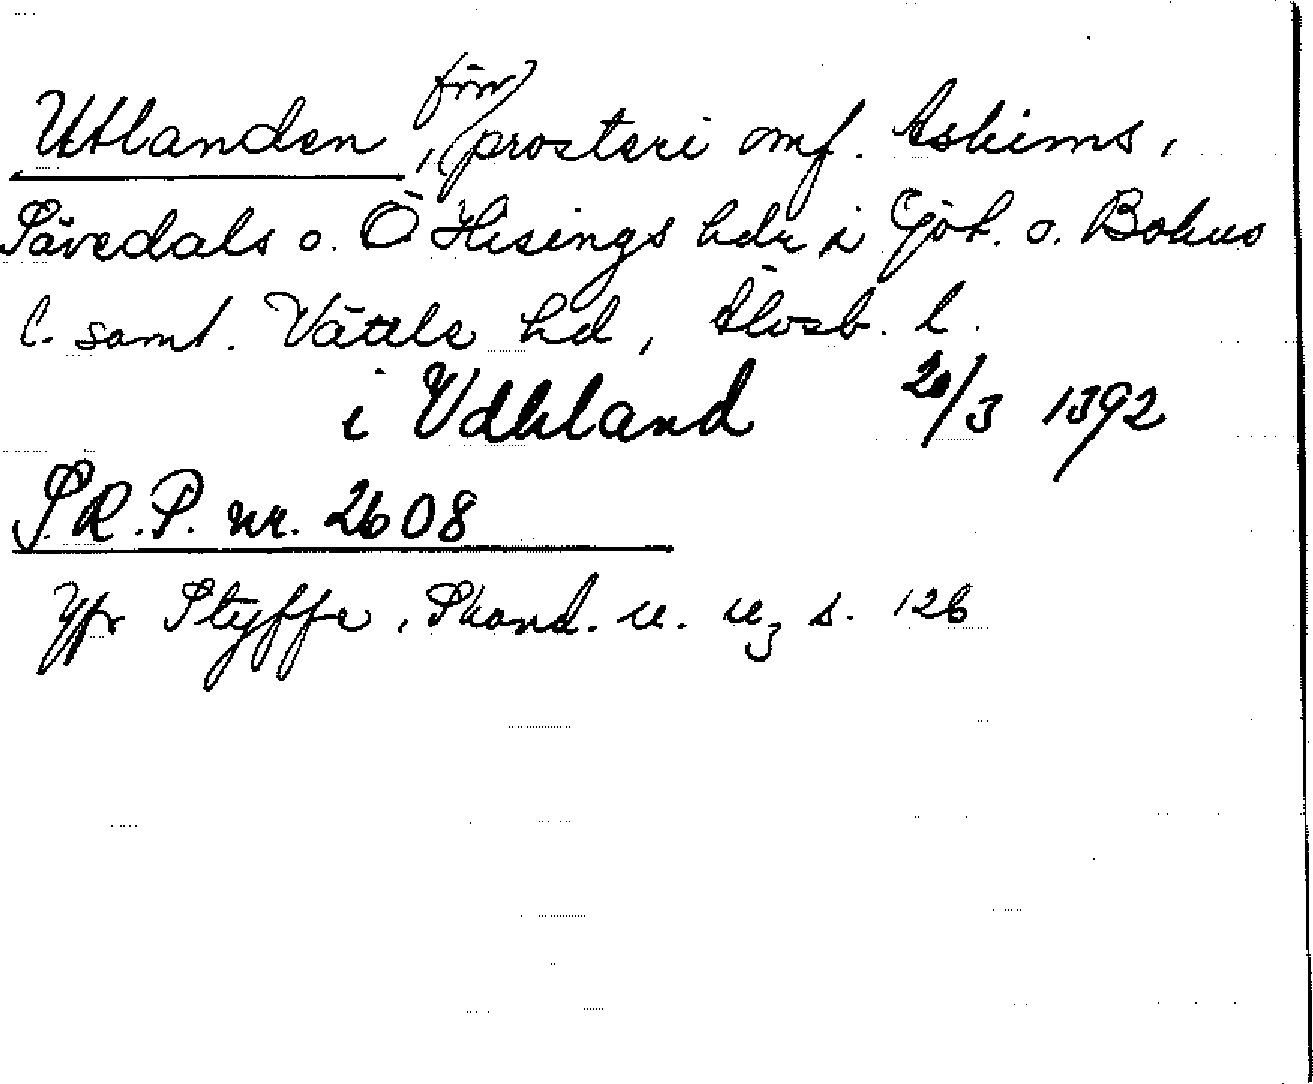 Utlanden, förr prosteri omf. Askims,
Sävedals o. Ö Hisings hdr i Göt. o. Bohus
l. samt. Vättle hd, Älvsb. l.
i Vdhland 20/3 1392
S.R.P. nr. 2608
Jfr Styffe, Skand. u. u3 s. 126